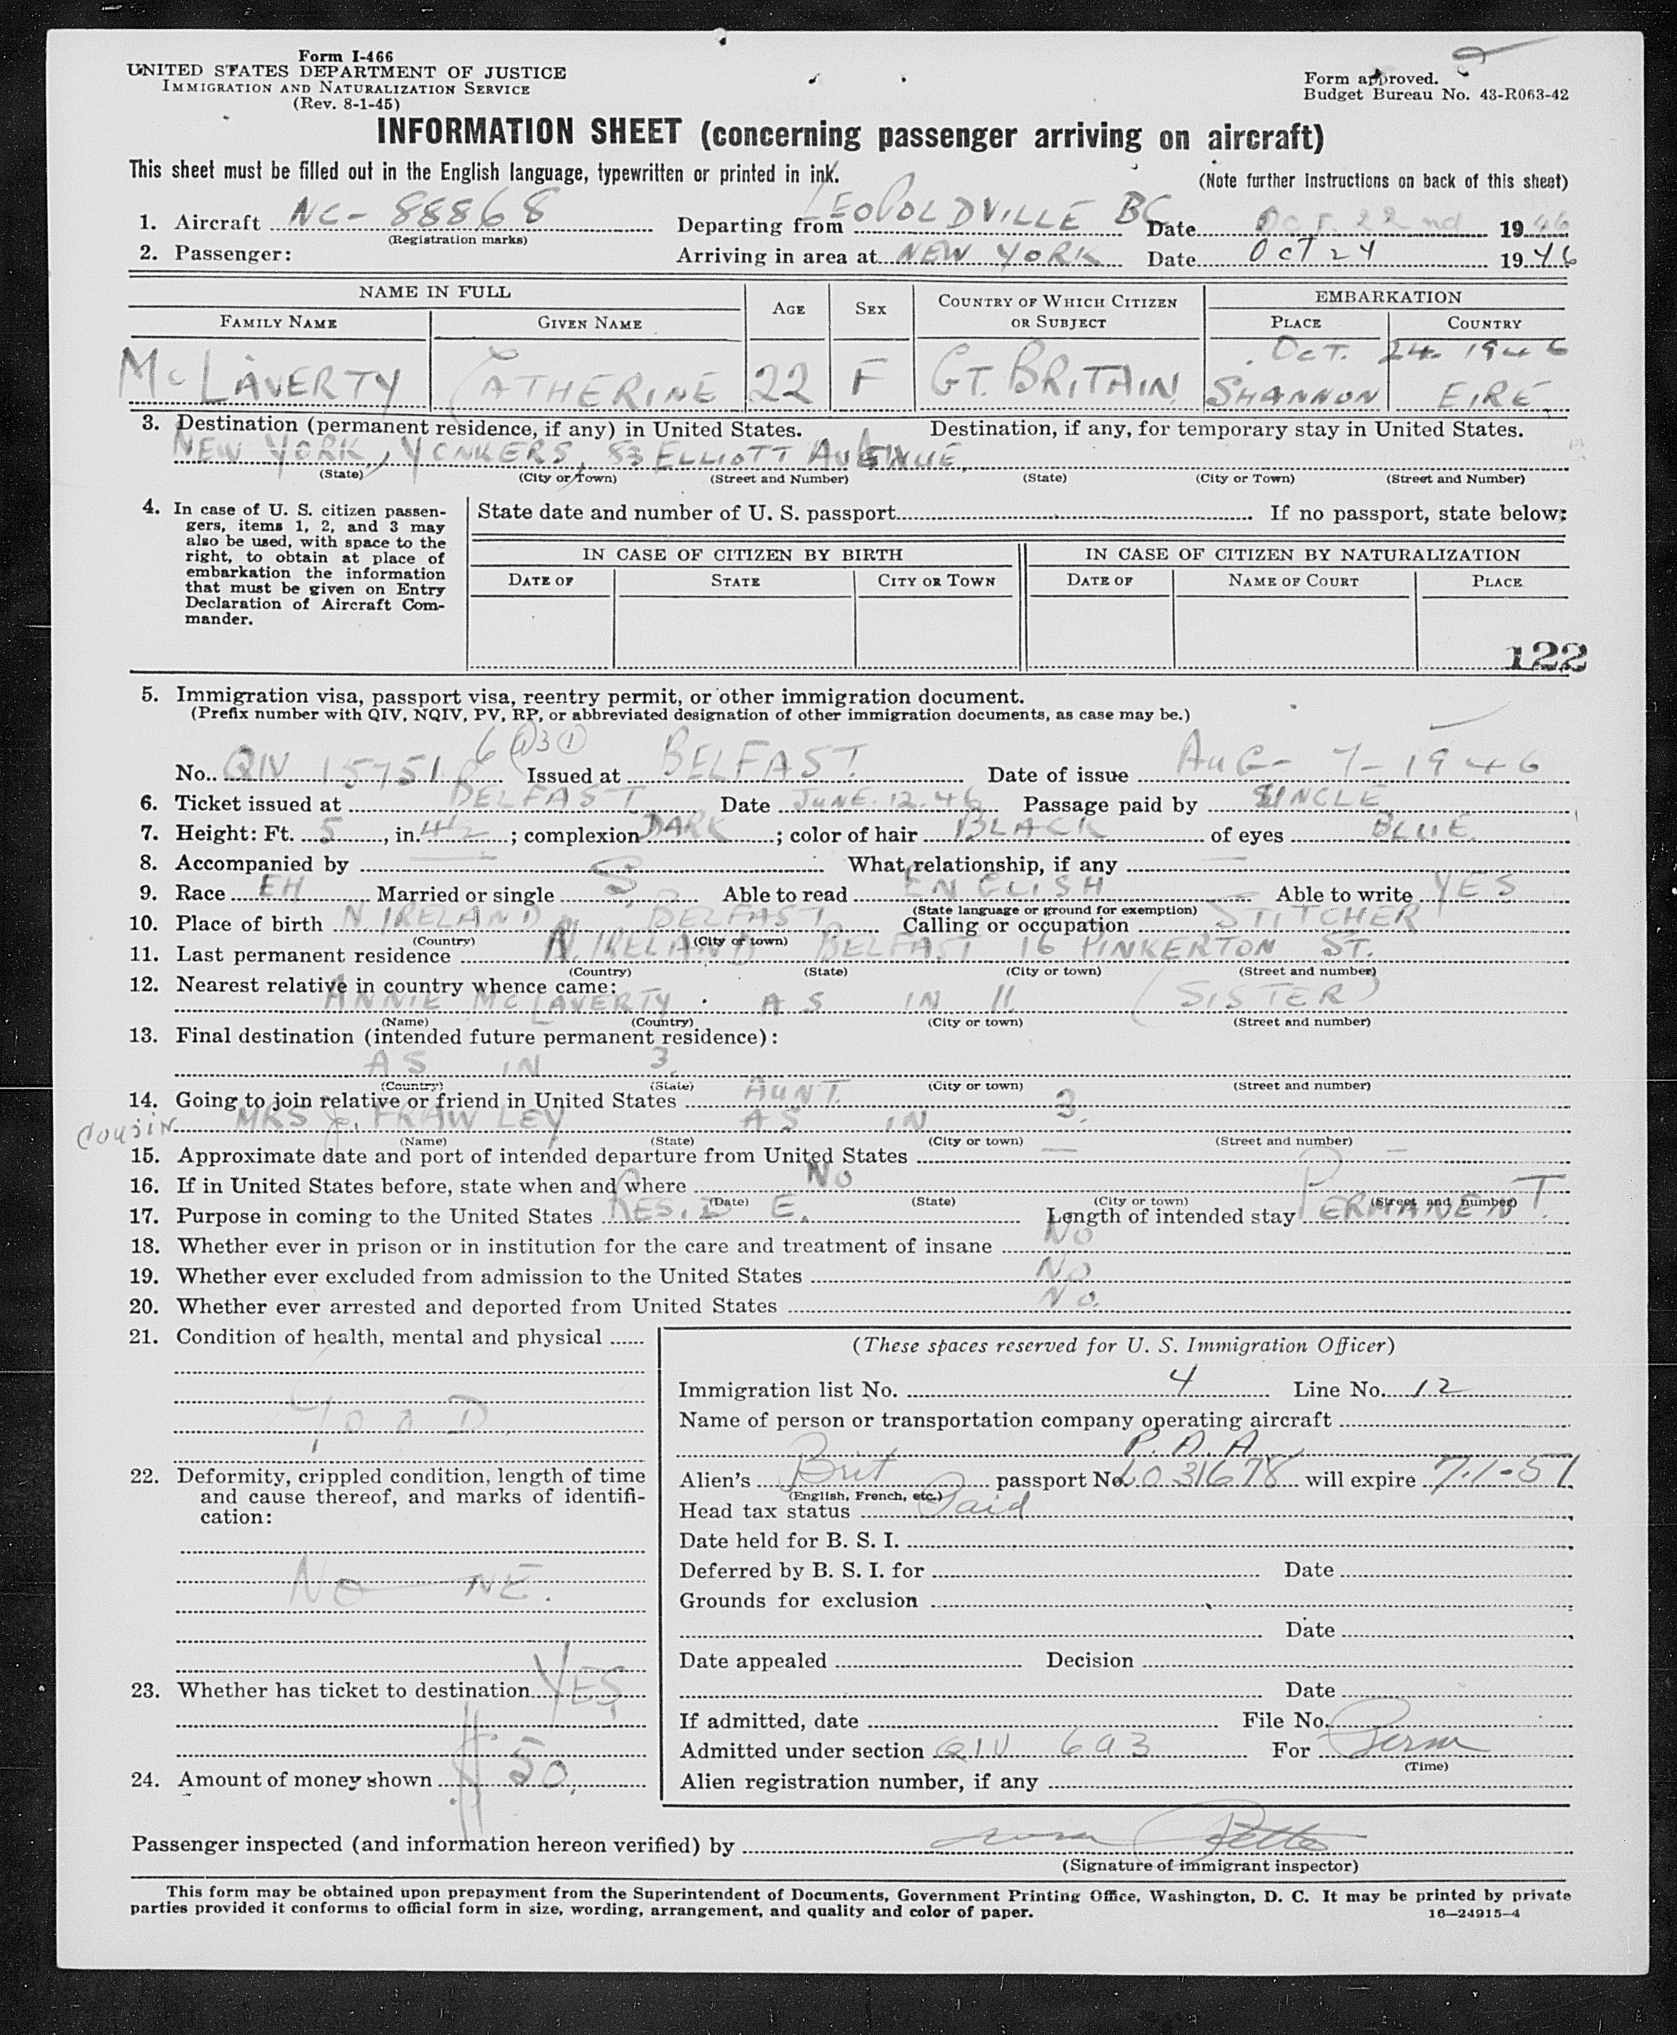 Form I-466
UNITED STATES DEPARTMENT OF JUSTICE
IMMIGRATION AND NATURALIZATION SERVICE
(Rev. 8-1-45)
Form approved.
Budget Bureau No. 43-R063-42
INFORMATION SHEET (concerning passenger arriving on aircraft)
This sheet must be filled out in the English language, typewritten or printed in ink.
(Note further instructions on back of this sheet)
1. Aircraft NC-88868 Departing from LEOPOLDVILLE BC Date OCT. 22nd 1946
(Registration marks)
2. Passenger: Arriving in area at NEW YORK Date OCT 24 1946
NAME IN FULL AGE SEX COUNTRY OF WHICH CITIZEN OR SUBJECT EMBARKATION
FAMILY NAME GIVEN NAME PLACE COUNTRY
OCT. 24. 1946
McLAVERTY CATHERINE 22 F GT. BRITAIN SHANNON EIRE
3. Destination (permanent residence, if any) in United States. Destination, if any, for temporary stay in United States.
NEW YORK, YONKERS, 83 ELLIOTT AVENUE
(State) (City or Town) (Street and Number) (State) (City or Town) (Street and Number)
4. In case of U. S. citizen passengers, items 1, 2, and 3 may also be used, with space to the right, to obtain at place of embarkation the information that must be given on Entry Declaration of Aircraft Commander.
State date and number of U. S. passport If no passport, state below:
IN CASE OF CITIZEN BY BIRTH IN CASE OF CITIZEN BY NATURALIZATION
DATE OF STATE CITY OR TOWN DATE OF NAME OF COURT PLACE
122
5. Immigration visa, passport visa, reentry permit, or other immigration document.
(Prefix number with QIV, NQIV, PV, RP, or abbreviated designation of other immigration documents, as case may be.)
No. QIV 15751 Issued at BELFAST. Date of issue AUG- 7-1946
6. Ticket issued at BELFAST Date JUNE. 12. 46 Passage paid by UNCLE
7. Height: Ft. 5, in. 4½; complexion DARK; color of hair BLACK of eyes BLUE.
8. Accompanied by — What relationship, if any —
9. Race EH Married or single S. Able to read ENGLISH Able to write YES
(State language or ground for exemption)
10. Place of birth N IRELAND BELFAST Calling or occupation STITCHER
(Country) (City or town)
11. Last permanent residence N. IRELAND BELFAST 16 PINKERTON ST.
(Country) (State) (City or town) (Street and number)
12. Nearest relative in country whence came:
ANNIE McLAVERTY. AS IN 11. (SISTER)
(Name) (Country) (City or town) (Street and number)
13. Final destination (intended future permanent residence):
AS IN 3.
(Country) (State) (City or town) (Street and number)
14. Going to join relative or friend in United States AUNT. 3.
Cousin MRS J. FRAWLEY AS IN
(Name) (State) (City or town) (Street and number)
15. Approximate date and port of intended departure from United States —
16. If in United States before, state when and where NO
(Date) (State) (City or town) (Street and number)
17. Purpose in coming to the United States RESIDE. Length of intended stay PERMANENT.
18. Whether ever in prison or in institution for the care and treatment of insane NO
19. Whether ever excluded from admission to the United States NO
20. Whether ever arrested and deported from United States NO.
21. Condition of health, mental and physical
GOOD
22. Deformity, crippled condition, length of time and cause thereof, and marks of identification:
NONE.
23. Whether has ticket to destination YES
24. Amount of money shown $50.
(These spaces reserved for U. S. Immigration Officer)
Immigration list No. 4 Line No. 12
Name of person or transportation company operating aircraft
P.A.A.
Alien's Brit passport No. L031678 will expire 7-1-51
(English, French, etc.)
Head tax status Paid
Date held for B. S. I.
Deferred by B. S. I. for Date
Grounds for exclusion
Date
Date appealed Decision
Date
If admitted, date File No.
Admitted under section QIV 6a3 For Perm
(Time)
Alien registration number, if any
Passenger inspected (and information hereon verified) by
(Signature of immigrant inspector)
This form may be obtained upon prepayment from the Superintendent of Documents, Government Printing Office, Washington, D. C. It may be printed by private
parties provided it conforms to official form in size, wording, arrangement, and quality and color of paper.
16—24915-4